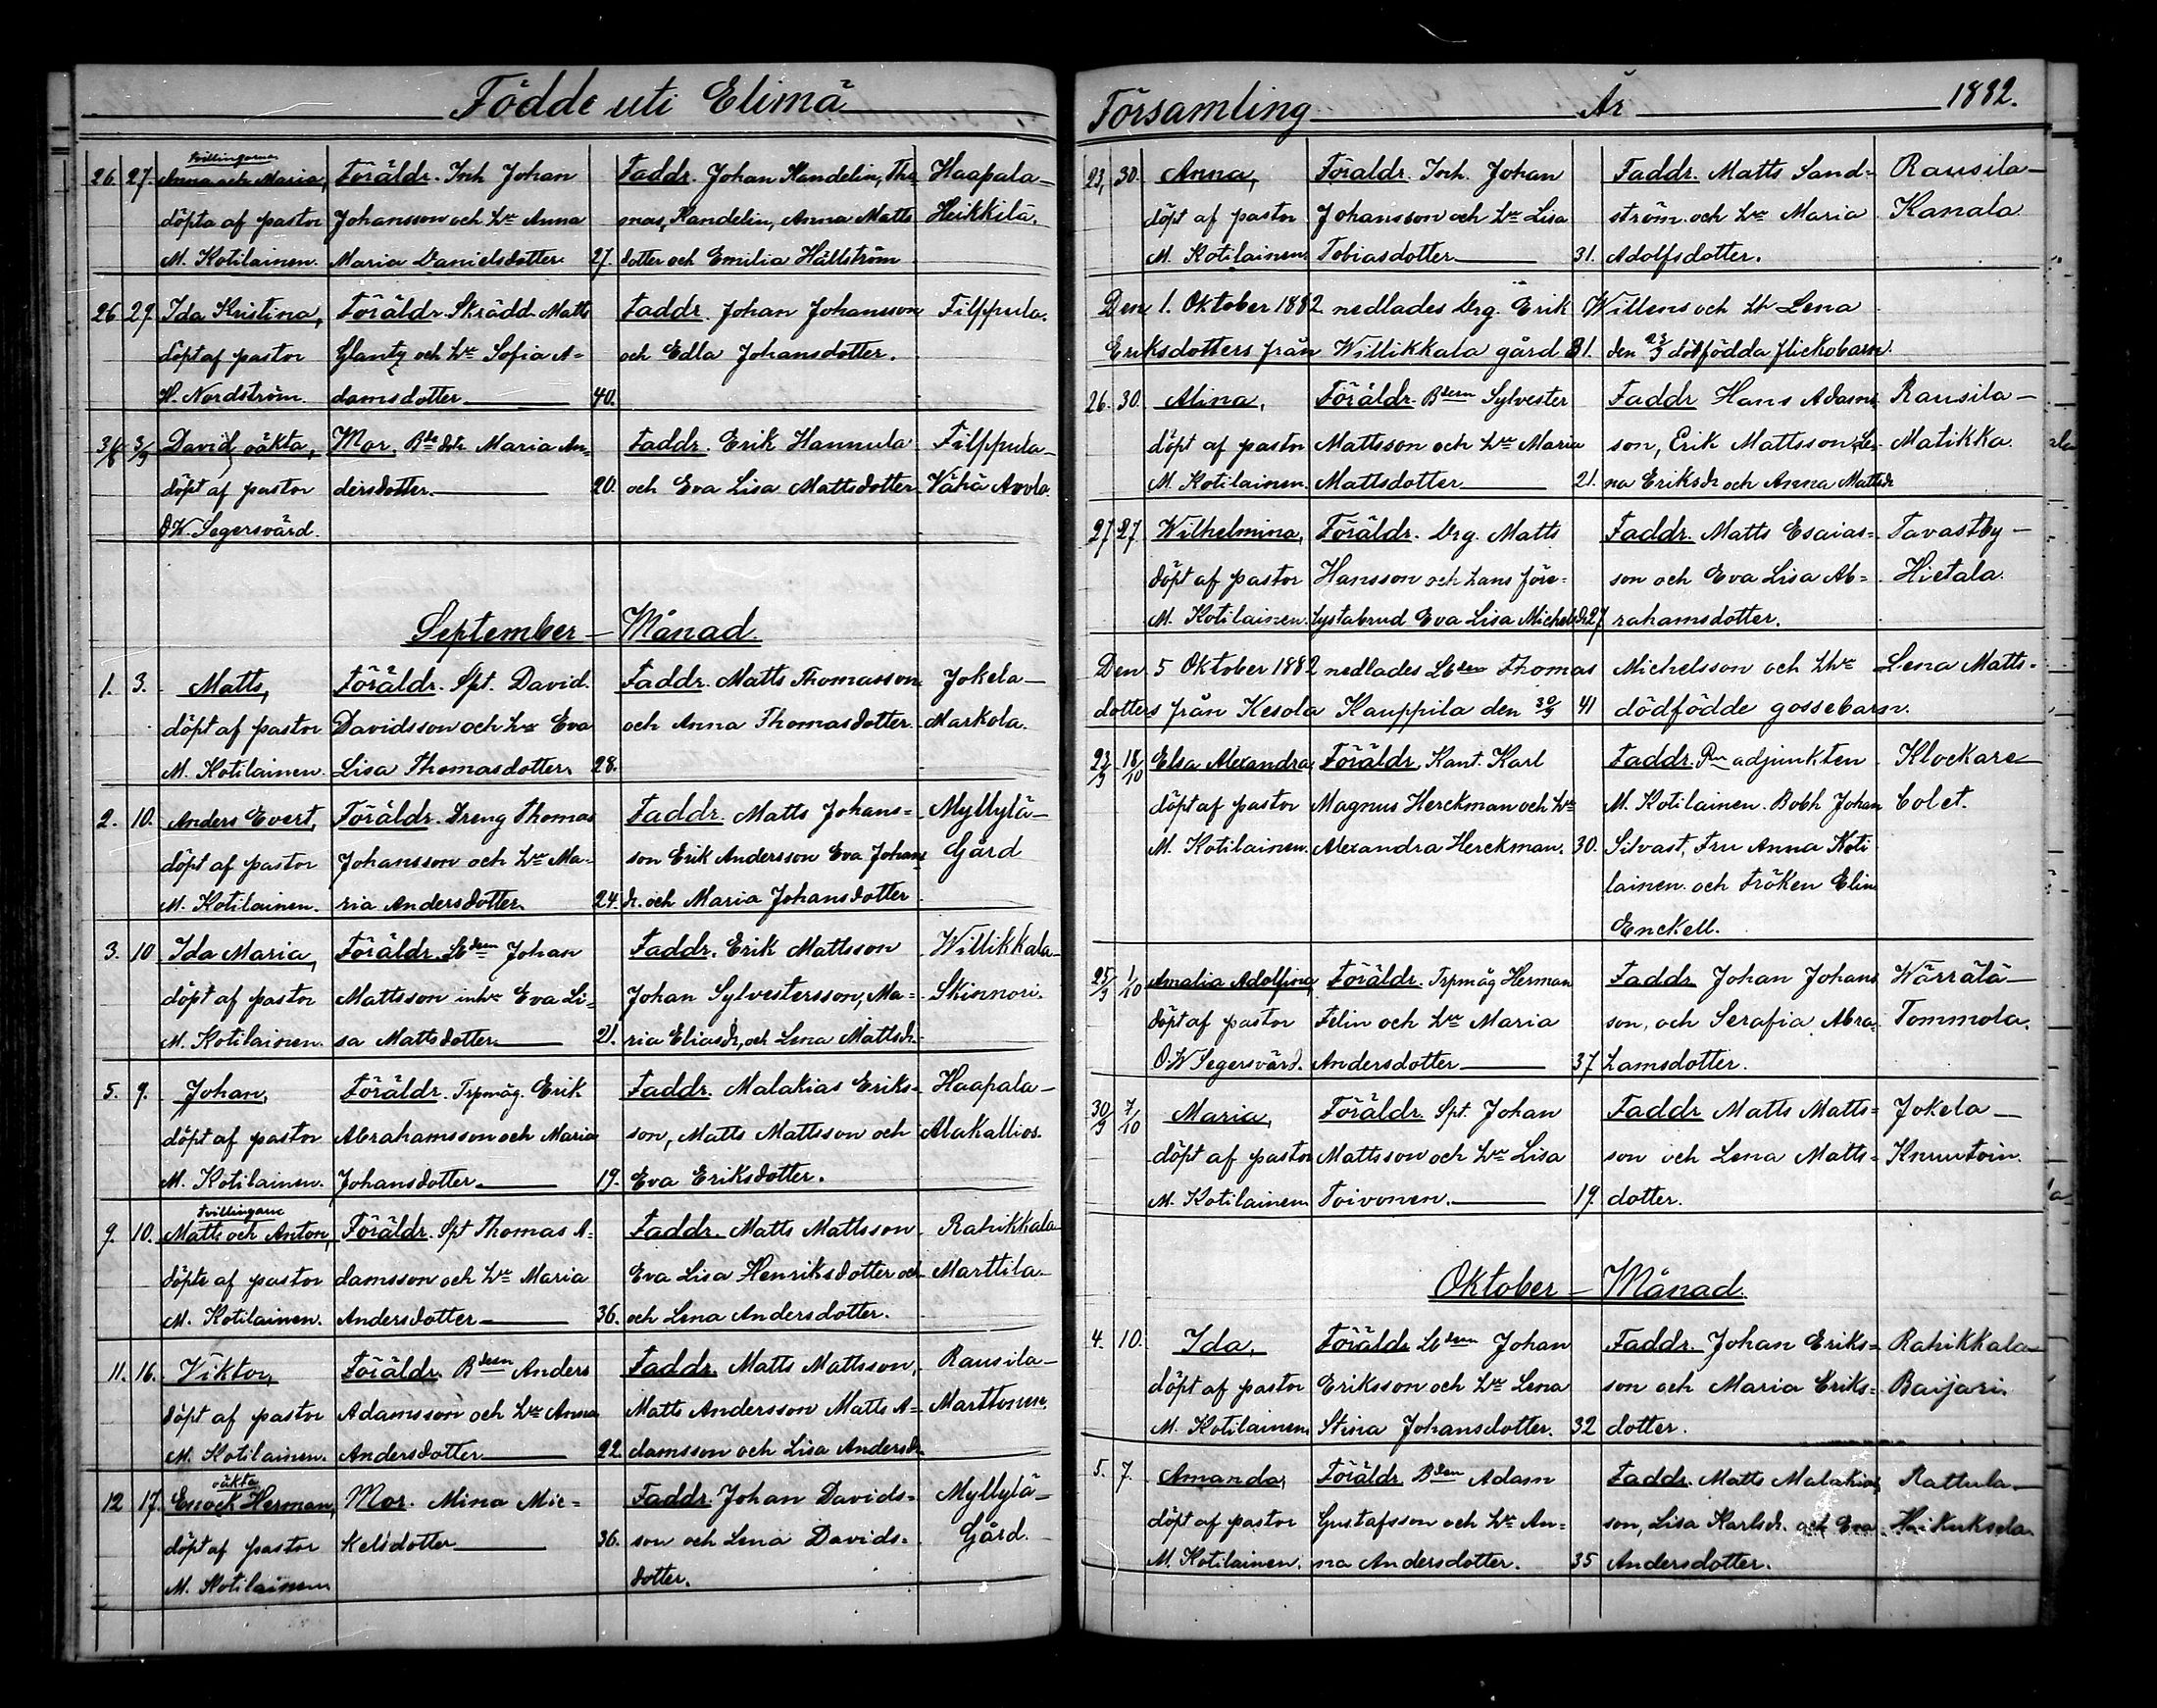 Födde uti Elimä
26. 27. Tvillingarna Anna och Maria, Föräldr. Inh Johan Faddr. Johan Kandelin, Tho- Haapala-
döpta af pastor Johansson och h:u Anna mas Kandelin, Anna Matts Heikkilä.
M. Kotilainen. Maria Danielsdotter. 27. dotter och Emilia Hällström
26 27. Ida Kristina, Föräldr. Skrädd. Matts Faddr. Johan Johansson Filppula.
döpt af pastor Glantz och h:u Sofia A- och Edla Johansdotter.
H. Nordström. damsdotter 40.
31/8 3/9 David oäkta, Mor. B:de dtr Maria An- Faddr. Erik Hannula Filppula-
döpt af pastor dersdotter. 20. och Eva Lisa Mattsdotter Vähä Avola.
O.W. Segersvärd.
September - Månad.
1. 3. Matts, Föräldr. Spt. David Faddr. Matts Thomasson Jokela-
döpt af pastor Davidsson och h:u Eva och Anna Thomasdotter. Markola.
M. Kotilainen. Lisa Thomasdotter. 28.
2. 10. Anders Evert, Föräldr. Dreng Thomas Faddr. Matts Johans- Myllylä-
döpt af pastor Johansson och h:u Ma- son Erik Andersson Eva Johans Gård
M. Kotilainen. ria Andersdotter. 24. dr. och Maria Johansdotter
3. 10 Ida Maria, Föräldr. Lbdem Johan Faddr. Erik Mattsson Willikkala-
döpt af pastor Mattsson inh:u Eva Li- Johan Sylvestersson, Ma- Skinnari.
M. Kotilainen. sa Mattsdotter. 21. ria Eliasdr, och Lena Mattsdr.
5. 9. Johan, Föräldr. Trpmåg. Erik Faddr. Malakias Eriks- Haapala-
döpt af pastor Abrahamsson och Maria son, Matts Mattsson och Alakallios.
M. Kotilainen. Johansdotter. 19. Eva Eriksdotter.
9. 10. Tvillingarne Matts och Anton, Föräldr. Spt Thomas A- Faddr. Matts Mattsson Rahikkala-
döpte af pastor damsson och h:u Maria Eva Lisa Henriksdotter och Marttila-
M. Kotilainen. Andersdotter 36. och Lena Andersdotter.
11. 16. Viktor, Föräldr. Bdem Anders Faddr. Matts Mattsson, Rausila-
döpt af pastor Adamsson och h:u Anna Matts Andersson Matts A- Marttonen.
M. Kotilainen. Andersdotter 22. damsson och Lisa Andersdr.
12 17. oäkta Enock Herman, Mor. Mina Mic- Faddr. Johan Davids- Myllylä-
döpt af pastor kelsdotter 36. son och Lena Davids- Gård.
M. Kotilainen dotter.
Församling År 1882.
23, 30. Anna, Föräldr. Inh. Johan Faddr. Matts Sand- Rausila-
döpt af pastor Johansson och h:u Lisa ström och h:u Maria Kanala
M. Kotilainen. Tobiasdotter 31. Adolfsdotter.
Den 1. Oktober 1882 nedlades Drg. Erik Willens och h:u Lena
Eriksdotters från Willikkala gård 31. den 23/9 dödfödda flickobarn.
26. 30. Alina, Föräldr. Bdem Sylvester Faddr Hans Adams Rausila-
döpt af pastor Mattsson och h:u Maria son, Erik Mattsson, Le- Matikka.
M. Kotilainen. Mattsdotter 21. na Eriksdr och Anna Mattsdr
27. 27 Wilhelmina, Föräldr. Drg. Matts Faddr. Matts Esaias- Tavastby-
döpt af pastor Hansson och hans före- son och Eva Lisa Ab- Hietala.
M. Kotilainen. lystabrud Eva Lisa Michelsdr 27 rahamsdotter.
Den 5 Oktober 1882 nedlades Lbdem Thomas Michelsson och h:u Lena Matts-
dotters från Kesola Kauppila den 30/9 41 dödfödde gossebarn.
23/9 18/10 Elsa Alexandra, Föräldr. Kant. Karl Faddr. adjunkten Klockare
döpt af pastor Magnus Herckman och h:u M. Kotilainen. Bobh Johan bolet.
M. Kotilainen. Alexandra Herckman. 30. Silvast, Fru Anna Koti
lainen och Fröken Elin
Enckell.
25/9 1/10 Amalia Adolfina, Föräldr. Trpmåg Herman Faddr. Johan Johans Wärrälä-
döpt af pastor Felin och h:u Maria son, och Serafia Abra- Tommola.
O.W Segersvärd. Andersdotter 37 hamsdotter.
30/9 7/10 Maria, Föräldr. Spt. Johan Faddr Matts Matts- Jokela-
döpt af pastor Mattsson och h:u Lisa son och Lena Matts- Knuutoin.
M. Kotilainen Toivonen. 19. dotter.
Oktober - Månad.
4. 10. Ida, Föräldr Lbdem Johan Faddr. Johan Eriks- Rahikkala-
döpt af pastor Eriksson och h:u Lena son och Maria Eriks- Baijari
M. Kotilainen. Stina Johansdotter. 32 dotter.
5. 7. Amanda, Föräldr. Bdem Adam Faddr. Matts Malakias Rattula-
döpt af pastor Gustafsson och h:u An- son, Lisa Karlsdr. och Eva
M. Kotilainen. na Andersdotter. 35 Andersdotter.